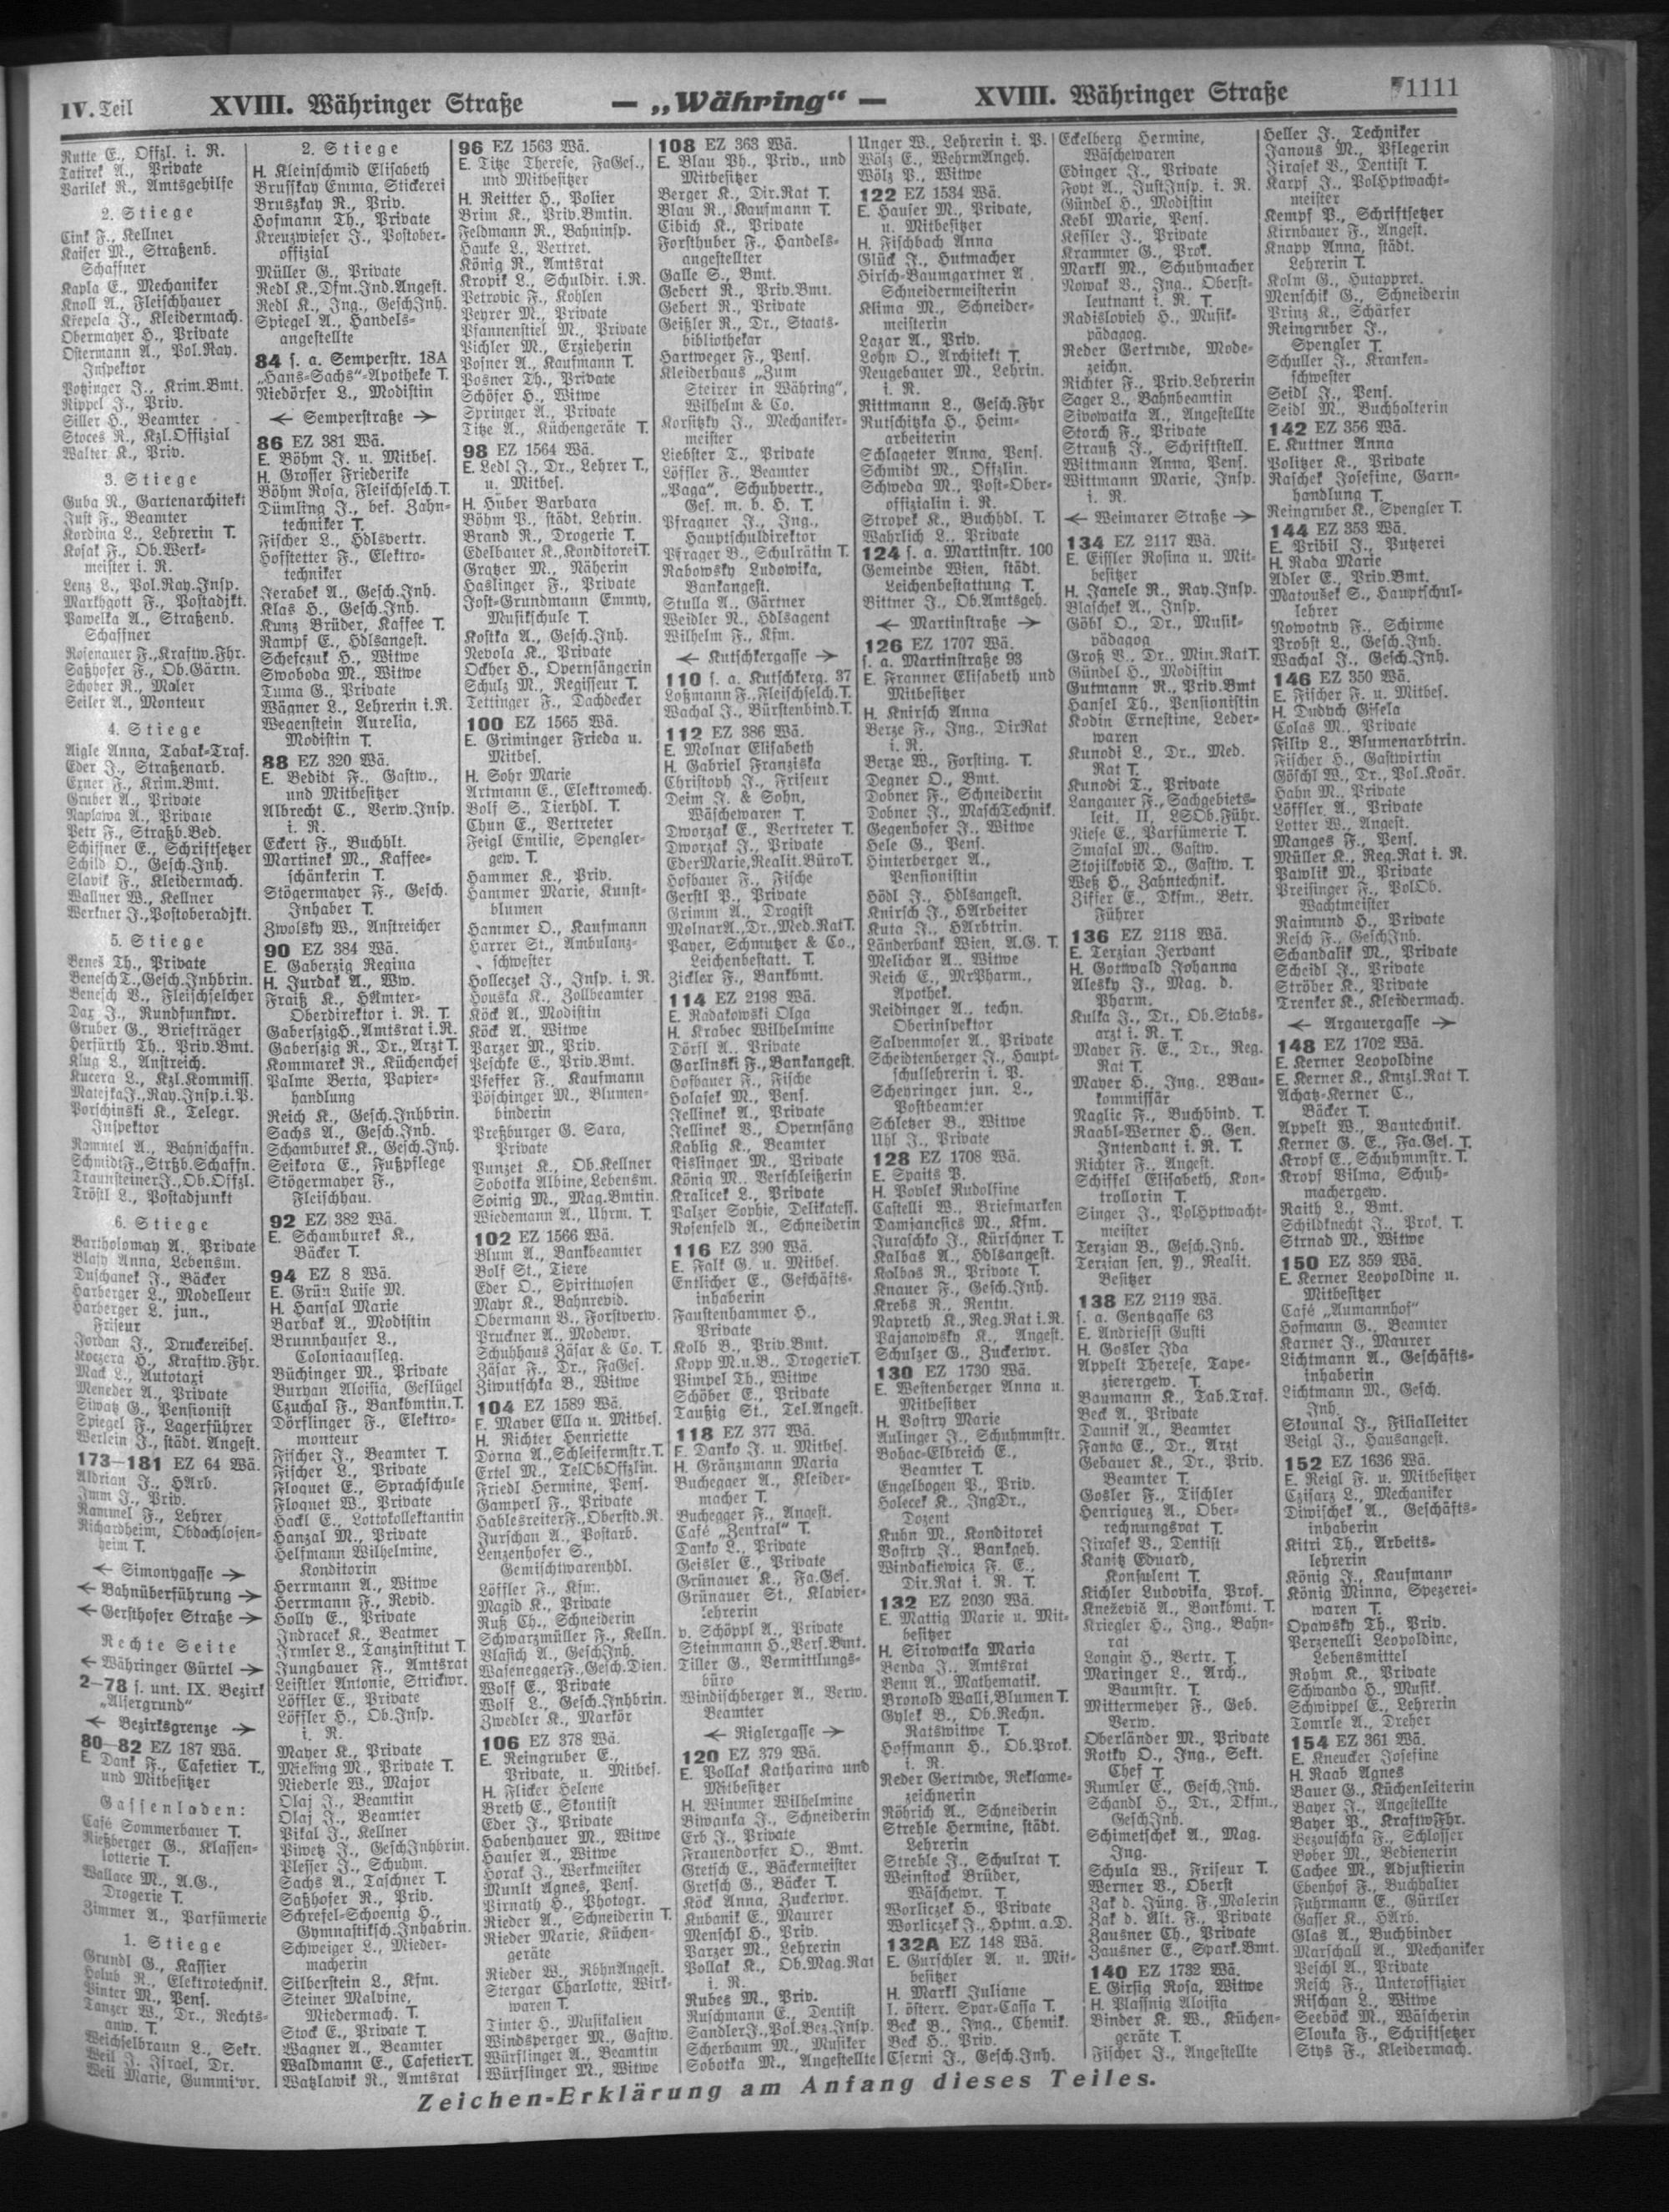 IV. Teil
XVIII. Währinger Straße
— „Währing“ —
XVIII. Währinger Straße
1111
Rutte E., Offzl. i. R.
Tatirek A., Private
Varilek R., Amtsgehilfe
2. Stiege
Cink F., Kellner
Kaiser M., Straßenb.
Schaffner
Kapla E., Mechaniker
Knoll A., Fleischhauer
Křepela J., Kleidermach.
Obermayer H., Private
Ostermann A., Pol.Ray.
Inspektor
Potzinger J., Krim.Bmt.
Rippel J., Priv.
Siller H., Beamter
Stoces R., Kzl.Offizial
Walter K., Priv.
3. Stiege
Guba R., Gartenarchitekt
Just F., Beamter
Kordina L., Lehrerin T.
Kosak F., Ob.Werk-
meister i. R.
Lenz L., Pol.Ray.Insp.
Markhgott F., Postadjkt.
Pawelka A., Straßenb.
Schaffner
Rosenauer F., Kraftw.Fhr.
Saßhofer F., Ob.Gärtn.
Schober R., Maler
Seiler A., Monteur
4. Stiege
Aigle Anna, Tabak-Traf.
Eder J., Straßenarb.
Exner F., Krim.Bmt.
Gruber A., Private
Naplawa A., Private
Petr F., Straßb.Bed.
Schiffner E., Schriftsetzer
Schild O., Gesch.Inh.
Slavik F., Kleidermach.
Wallner W., Kellner
Werkner J., Postoberadjkt.
5. Stiege
Beneš Th., Private
Benesch T., Gesch.Inhbrin.
Benesch V., Fleischselcher
Dax J., Rundfunkwr.
Gruber G., Briefträger
Herfürth Th., Priv.Bmt.
Klug L., Anstreich.
Kucera L., Kzl.Kommiss.
Matejka J., Ray.Insp. i. P.
Porschinski K., Telegr.
Inspektor
Rammel A., Bahnschaffn.
Schmidt F., Strßb.Schaffn.
Traunsteiner J., Ob.Offzl.
Tröstl L., Postadjunkt
6. Stiege
Bartholomay A., Private
Blasy Anna, Lebensm.
Duschanek J., Bäcker
Harberger L., Modelleur
Harberger L. jun.,
Friseur
Jordan J., Druckereibes.
Koczera H., Kraftw.Fhr.
Mack L., Autotaxi
Meneder A., Private
Siwatz G., Pensionist
Spiegel F., Lagerführer
Werlein J., städt. Angest.
173—181 EZ 64 Wä.
Aldrian J., HArb.
Imm J., Priv.
Rammel F., Lehrer
Richardheim, Obdachlosen-
heim T.
← Simonygasse →
← Bahnüberführung →
← Gersthofer Straße →
Rechte Seite
← Währinger Gürtel →
2—78 s. unt. IX. Bezirk
„Alsergrund“
← Bezirksgrenze →
80—82 EZ 187 Wä.
E. Dank F., Cafetier T.,
und Mitbesitzer
Gassenladen:
Café Sommerbauer T.
Rießberger G., Klassen-
lotterie T.
Wallace M., A.G.,
Drogerie T.
Zimmer A., Parfümerie
1. Stiege
Grundl G., Kassier
Holub R., Elektrotechnik.
Pinter M., Pens.
Tanzer W., Dr., Rechts-
anw. T.
Weichselbraun L., Sekr.
Weil J. Israel, Dr.
Weil Marie, Gummiwr.
2. Stiege
H. Kleinschmid Elisabeth
Brusskay Emma, Stickerei
Bruszkay R., Priv.
Hofmann Th., Private
Kreuzwieser J., Postober-
offizial
Müller G., Private
Redl K., Dkm.Ind.Angest.
Redl K., Ing., GeschInh.
Spiegel A., Handels-
angestellte
84 s. a. Semperstr. 18A
„Hans-Sachs“-Apotheke T.
Niedörfer L., Modistin
← Semperstraße →
86 EZ 381 Wä.
E. Böhm J. u. Mitbes.
H. Grosser Friederike
Böhm Rosa, Fleischselch. T.
Dümling J., bef. Zahn-
techniker T.
Fischer L., Hdlsvertr.
Hofstetter F., Elektro-
techniker
Jerabek A., Gesch.Inh.
Klas H., Gesch.Inh.
Kunz Brüder, Kaffee T.
Rampf E., Hdlsangest.
Schefczuk H., Witwe
Swoboda M., Witwe
Tuma G., Private
Wägner L., Lehrerin i.R.
Wegenstein Aurelia,
Modistin T.
88 EZ 320 Wä.
E. Bedidt F., Gastw.,
und Mitbesitzer
Albrecht C., Verw.Insp.
i. R.
Eckert F., Buchblt.
Martinek M., Kaffee-
schänkerin T.
Stögermayer F., Gesch.
Inhaber T.
Zwolsky W., Anstreicher
90 EZ 384 Wä.
E. Gaberzig Regina
H. Jurdak A., Ww.
Fraiß K., HÄmter-
Oberdirektor i. R. T.
Gaberszig H., Amtsrat i.R.
Gaberszig R., Dr., Arzt T.
Kommarek R., Küchenchef
Palme Berta, Papier-
handlung
Reich K., Gesch.Inhbrin.
Sachs A., Gesch.Inh.
Schamburek K., Gesch.Inh.
Seikora E., Fußpflege
Stögermayer F.,
Fleischhau.
92 EZ 382 Wä.
E. Schamburek K.,
Bäcker T.
94 EZ 8 Wä.
E. Grün Luise M.
H. Hansal Marie
Barbak A., Modistin
Brunnhauser L.,
Coloniaausleg.
Büchinger M., Private
Buryan Aloisia, Geflügel
Czuchal F., Bankbmtin. T.
Dörflinger F., Elektro-
monteur
Fischer J., Beamter T.
Fischer L., Private
Floquet E., Sprachschule
Floquet W., Private
Hackl E., Lottokollektantin
Hanzal M., Private
Helfmann Wilhelmine,
Konditorin
Herrmann A., Witwe
Herrmann F., Revid.
Holly E., Private
Indracek K., Beatmer
Irmler L., Tanzinstitut T.
Jungbauer F., Amtsrat
Leistler Antonie, Strickwr.
Löffler E., Private
Löffler H., Ob.Insp.
i. R.
Mayer K., Private
Mieling M., Private T.
Niederle W., Major
Olaj J., Beamtin
Olaj J., Beamter
Pikal J., Kellner
Piwetz J., GeschInhbrin.
Plesser J., Schuhm.
Sachs A., Taschner T.
Saßhofer R., Priv.
Schrefel-Schoenig H.,
Gymnastiksch.Inhabrin.
Schweiger L., Mieder-
macherin
Silberstein L., Kfm.
Steiner Malvine,
Miedermach. T.
Stock E., Private T.
Wagner A., Beamter
Waldmann E., Cafetier T.
Watzlawik R., Amtsrat
96 EZ 1563 Wä.
E. Titze Therese, FaGes.,
und Mitbesitzer
H. Reitter H., Polier
Brim K., Priv.Bmtin.
Feldmann R., Bahninsp.
Hauke L., Vertret.
König R., Amtsrat
Kropik L., Schuldir. i.R.
Petrovic F., Kohlen
Peyrer M., Private
Pfannenstiel M., Private
Pichler M., Erzieherin
Posner A., Kaufmann T.
Posner Th., Private
Schöfer H., Witwe
Springer A., Private
Titze A., Küchengeräte T.
98 EZ 1564 Wä.
E. Ledl J., Dr., Lehrer T.,
u. Mitbes.
H. Huber Barbara
Böhm P., städt. Lehrin.
Brand R., Drogerie T.
Edelbauer K., Konditorei T.
Gratzer M., Näherin
Haslinger F., Private
Jost-Grundmann Emmy,
Musikschule T.
Kostka A., Gesch.Inh.
Nevola K., Private
Ockher H., Opernsängerin
Schulz M., Regisseur T.
Tettinger F., Dachdecker
100 EZ 1565 Wä.
E. Griminger Frieda u.
Mitbes.
H. Sohr Marie
Artmann E., Elektromech.
Bolf S., Tierhdl. T.
Chun E., Vertreter
Feigl Emilie, Spengler-
gew. T.
Hammer K., Priv.
Hammer Marie, Kunst-
blumen
Hammer O., Kaufmann
Harrer St., Ambulanz-
schwester
Holleczek J., Insp. i. R.
Houska K., Zollbeamter
Köck A., Modistin
Köck A., Witwe
Parzer M., Priv.
Peschke E., Priv.Bmt.
Pfeffer F., Kaufmann
Pöschinger M., Blumen-
binderin
Preßburger G. Sara,
Private
Punzet K., Ob.Kellner
Sobotka Albine, Lebensm.
Soinig M., Mag.Bmtin.
Wiedemann A., Uhrm. T.
102 EZ 1566 Wä.
Blum A., Bankbeamter
Bolf St., Tiere
Eder O., Spirituosen
Mayr K., Bahnrevid.
Obermann B., Forstverw.
Pruckner A., Modewr.
Schuhhaus Zäsar & Co. T.
Zäsar F., Dr., FaGes.
Ziwutschka B., Witwe
104 EZ 1589 Wä.
E. Mayer Ella u. Mitbes.
H. Richter Henriette
Dorna A., Schleifermstr. T.
Ertel M., TelObOffzlin.
Friedl Hermine, Pens.
Gamperl F., Private
Hablesreiter F., Oberstd.R.
Jurschan A., Postarb.
Lenzenhofer S.,
Gemischtwarenhdl.
Löffler F., Kfm.
Magid K., Private
Ruß Ch., Schneiderin
Schwarzmüller F., Kelln.
Vlasich A., GeschInh.
Wasenegger F., Gesch.Dien.
Wolf E., Private
Wolf L., Gesch.Inhbrin.
Zwedler K., Markör
106 EZ 378 Wä.
E. Reingruber E.,
Private, u. Mitbes.
H. Flicker Helene
Breth E., Skontist
Eder J., Private
Habenhauer M., Witwe
Hauser A., Witwe
Horak J., Werkmeister
Munlt Agnes, Pens.
Pirnath H., Photogr.
Rieder A., Schneiderin T.
Rieder Marie, Küchen-
geräte
Rieder W., RbhnAngest.
Stergar Charlotte, Wirk-
waren T.
Tinter H., Musikalien
Windsperger M., Gastw.
Würflinger A., Beamtin
Würflinger M., Witwe
108 EZ 363 Wä.
E. Blau Ph., Priv., und
Mitbesitzer
Berger K., Dir.Rat T.
Blau R., Kaufmann T.
Cibich K., Private
Forsthuber F., Handels-
angestellter
Galle S., Bmt.
Gebert R., Priv.Bmt.
Gebert R., Private
Geißler R., Dr., Staats-
bibliothekar
Hartweger F., Pens.
Kleiderhaus „Zum
Steirer in Währing“,
Wilhelm & Co.
Korsitzky J., Mechaniker-
meister
Liebster T., Private
Löffler F., Beamter
„Paga“, Schuhvertr.,
Ges. m. b. H. T.
Pfragner J., Ing.,
Hauptschuldirektor
Pfrager B., Schulrätin T.
Rabowsky Ludowika,
Bankangest.
Stulla A., Gärtner
Weidler R., Hdlsagent
Wilhelm F., Kfm.
← Kutschkergasse →
110 s. a. Kutschkerg. 37
Loßmann F., Fleischselch. T.
Wachal J., Bürstenbind. T.
112 EZ 386 Wä.
E. Molnar Elisabeth
H. Gabriel Franziska
Christoph J., Friseur
Deim J. & Sohn,
Wäschewaren T.
Dworzak E., Vertreter T.
Dworzak J., Private
Eder Marie, Realit.Büro T.
Hofbauer F., Fische
Gerstl P., Private
Grimm A., Drogist
Molnar A., Dr., Med.Rat T.
Payer, Schmutzer & Co.,
Leichenbestatt. T.
Zickler F., Bankbmt.
114 EZ 2198 Wä.
E. Radakowski Olga
H. Krabec Wilhelmine
Dörfl A., Private
Garlinski F., Bankangest.
Hofbauer F., Fische
Holasek M., Pens.
Jellinek A., Private
Jellinek V., Opernsäng
Kablig K., Beamter
Kislinger M., Private
König M., Verschleißerin
Kralicek L., Private
Palzer Sophie, Delikatess.
Rosenfeld A., Schneiderin
116 EZ 390 Wä.
E. Falk G. u. Mitbes.
Entlicher E., Geschäfts-
inhaberin
Faustenhammer H.,
Private
Kolb B., Priv.Bmt.
Kopp M. u. B., Drogerie T.
Pimpel Th., Witwe
Schöber E., Private
Taußig St., Tel.Angest.
118 EZ 377 Wä.
E. Danko J. u. Mitbes.
H. Gränzmann Maria
Buchegger A., Kleider-
macher T.
Buchegger F., Angest.
Café „Zentral“ T.
Danko L., Private
Geisler E., Private
Grünauer K., Fa.Ges.
Grünauer St., Klavier-
lehrerin
v. Schöppl A., Private
Steinmann H., Vers.Bmt.
Tiller G., Vermittlungs-
büro
Windischberger A., Verw.
Beamter
← Riglergasse →
120 EZ 379 Wä.
E. Pollak Katharina und
Mitbesitzer
H. Wimmer Wilhelmine
Biwanka J., Schneiderin
Erb J., Private
Frauendorfer O., Bmt.
Gretsch E., Bäckermeister
Gretsch G., Bäcker T.
Köck Anna, Zuckerwr.
Kubanik E., Maurer
Menschl H., Priv.
Parzer M., Lehrerin
Pollak K., Ob.Mag.Rat
i. R.
Rubes M., Priv.
Ruschmann E., Dentist
Sandler J., Pol.Bez.Insp.
Scherbaum M., Musiker
Sobotka M., Angestellte
Unger W., Lehrerin i. P.
Wölz E., WehrmAngeh.
Wölz P., Witwe
122 EZ 1534 Wä.
E. Hauser M., Private,
u. Mitbesitzer
H. Fischbach Anna
Glück J., Hutmacher
Hirsch-Baumgartner A.,
Schneidermeisterin
Klima M., Schneider-
meisterin
Lazar A., Priv.
Lohn O., Architekt T.
Neugebauer M., Lehrin.
i. R.
Rittmann L., Gesch.Fhr
Rutschitzka H., Heim-
arbeiterin
Schlageter Anna, Pens.
Schmidt M., Offzlin.
Schweda M., Post-Ober-
offizialin i. R.
Stropek K., Buchhdl. T.
Wahrlich L., Private
124 s. a. Martinstr. 100
Gemeinde Wien, städt.
Leichenbestattung T.
Bittner J., Ob.Amtsgeh.
← Martinstraße →
126 EZ 1707 Wä.
s. a. Martinstraße 93
E. Franner Elisabeth und
Mitbesitzer
H. Knirsch Anna
Berze F., Ing., DirRat
i. R.
Berze W., Forsting. T.
Degner O., Bmt.
Dobner F., Schneiderin
Dobner J., MaschTechnik.
Gegenhofer J., Witwe
Hele G., Pens.
Hinterberger A.,
Pensionistin
Hödl J., Hdlsangest.
Knirsch J., HArbeiter
Kuta J., HArbtrin.
Länderbank Wien, A.G. T.
Melichar A., Witwe
Reich E., MrPharm.,
Apothek.
Reidinger A., techn.
Oberinspektor
Salvenmoser A., Private
Scheidtenberger J., Haupt-
schullehrerin i. P.
Scheyringer jun. L.,
Postbeamter
Schletzer B., Witwe
Uhl J., Private
128 EZ 1708 Wä.
E. Spaits P.
H. Povlek Rudolfine
Castelli W., Briefmarken
Damjancsics M., Kfm.
Juraschko J., Kürschner T.
Kalbas A., Hdlsangest.
Kolbas R., Private T.
Knauer F., Gesch.Inh.
Krebs R., Rentn.
Napreth K., Reg.Rat i.R.
Pajanowsky K., Angest.
Schulzer G., Zuckerwr.
130 EZ 1730 Wä.
E. Westenberger Anna u.
Mitbesitzer
H. Vostry Marie
Aulinger J., Schuhmmstr.
Bohac-Elbreich E.,
Beamter T.
Engelbogen P., Priv.
Holecek K., IngDr.,
Dozent
Kuhn M., Konditorei
Vostry J., Bankgeh.
Windakiewicz F. E.,
Dir.Rat i. R. T.
132 EZ 2030 Wä.
E. Mattig Marie u. Mit-
besitzer
H. Sirowatka Maria
Benda J., Amtsrat
Benn A., Mathematik.
Bronold Walli, Blumen T.
Gylek B., Ob.Rechn.
Ratswitwe T.
Hoffmann H., Ob.Prof.
i. R.
Reder Gertrude, Reklame-
zeichnerin
Röhrich A., Schneiderin
Strehle Hermine, städt.
Lehrerin
Streble J., Schulrat T.
Weinstock Brüder,
Wäschewr. T.
Worliczek H., Private
Worliczek J., Hptm. a.D.
132A EZ 148 Wä.
E. Gurschler A. u. Mit-
besitzer
H. Markl Juliane
I. österr. Spar-Cassa T.
Beck B., Ing., Chemik.
Beck H., Priv.
Cserni J., Gesch.Inh.
Eckelberg Hermine,
Wäschewaren
Edinger J., Private
Foyt A., JustInsp. i. R.
Gündel H., Modistin
Kebl Marie, Pens.
Kessler J., Private
Krammer G., Prof.
Markl M., Schuhmacher
Nowak B., Ing., Oberst-
leutnant i. R. T.
Radislovich H., Musik-
pädagog.
Reder Gertrude, Mode-
zeichn.
Richter F., Priv.Lehrerin
Sager L., Bahnbeamtin
Sivowatka A., Angestellte
Storch F., Private
Strauß J., Schriftstell.
Wittmann Anna, Pens.
Wittmann Marie, Insp.
i. R.
← Weimarer Straße →
134 EZ 2117 Wä.
E. Eissler Rosina u. Mit-
besitzer
H. Janele R., Ray.Insp.
Blaschek A., Insp.
Göbl O., Dr., Musik-
pädagog
Groß V., Dr., Min.Rat T.
Gündel H., Modistin
Gutmann R., Priv.Bmt
Hansel Th., Pensionistin
Kodin Ernestine, Leder-
waren
Kunodi L., Dr., Med.
Rat T.
Kunodi T., Private
Langauer F., Sachgebiets-
leit. II, LSOb.Führ.
Riese E., Parfümerie T.
Smasal M., Gastw.
Stojilkovič D., Gastw. T.
Weß H., Zahntechnik.
Ziffer E., Dkfm., Betr.
Führer
136 EZ 2118 Wä.
E. Terzian Jervant
H. Gottwald Johanna
Alesky J., Mag. d.
Pharm.
Kulka J., Dr., Ob.Stabs-
arzt i. R. T.
Mayer F. E., Dr., Reg.
Rat T.
Mayer H., Ing., LBau-
kommissär
Naglic F., Buchbind. T.
Raabl-Werner H., Gen.
Intendant i. R. T.
Richter F., Angest.
Schiffel Elisabeth, Kon-
trollorin T.
Singer J., PolHptwacht-
meister
Terzian B., Gesch.Inh.
Terzian sen. P., Realit.
Besitzer
138 EZ 2119 Wä.
s. a. Gentzgasse 63
E. Andriessi Gusti
H. Gosler Ida
Appelt Therese, Tape-
zierergew. T.
Baumann K., Tab.Traf.
Beck A., Private
Daunik A., Beamter
Fanta E., Dr., Arzt
Gebauer K., Dr., Priv.
Beamter T.
Gosler F., Tischler
Henriquez A., Ober-
rechnungsrat T.
Jirasek V., Dentist
Kanitz Eduard,
Konsulent T.
Kichler Ludovika, Prof.
Kneževič A., Bankbmt. T.
Kriegler H., Ing., Bahn-
rat
Longin H., Vertr. T.
Maringer L., Arch.,
Baumstr. T.
Mittermeyer F., Geb.
Verw.
Oberländer M., Private
Rotky O., Ing., Sekt.
Chef T.
Rumler E., Gesch.Inh.
Schandl H., Dr., Dkfm.,
GeschInh.
Schimetschek A., Mag.
Ing.
Schula W., Friseur T.
Werner V., Oberst
Zak d. Jüng. F., Malerin
Zak d. Ält. F., Private
Zausner Ch., Private
Zausner E., Spark.Bmt.
140 EZ 1732 Wä.
E. Girsig Rosa, Witwe
H. Plassnig Aloisia
Binder K. W., Küchen-
geräte T.
Fischer J., Angestellte
Heller J., Techniker
Janous M., Pflegerin
Jirasek V., Dentist T.
Karpf J., PolHptwacht-
meister
Kempf P., Schriftsetzer
Kirnbauer F., Angest.
Knapp Anna, städt.
Lehrerin T.
Kolm G., Hutappret.
Menschik G., Schneiderin
Prinz K., Schärfer
Reingruber J.,
Spengler T.
Schuller J., Kranken-
schwester
Seidl J., Pens.
Seidl M., Buchhalterin
142 EZ 356 Wä.
E. Kuttner Anna
Politzer K., Private
Raschek Josefine, Garn-
handlung T.
Reingruber K., Spengler T.
144 EZ 353 Wä.
E. Pribil J., Putzerei
H. Rada Marie
Adler E., Priv.Bmt.
Matoušek S., Hauptschul-
lehrer
Nowotny F., Schirme
Probst L., Gesch.Inh.
Wachal J., Gesch.Inh.
146 EZ 350 Wä.
E. Fischer F. u. Mitbes.
H. Dudych Gisela
Colas M., Private
Filip L., Blumenarbtrin.
Fischer H., Gastwirtin
Göschl W., Dr., Pol.Koär.
Hahn M., Private
Löffler A., Private
Lotter W., Angest.
Manges F., Pens.
Müller K., Reg.Rat i. R.
Pawlik M., Private
Preisinger F., PolOb.
Wachtmeister
Raimund H., Private
Resch F., GeschInh.
Schandalik M., Private
Scheidl J., Private
Ströber K., Private
Trenker K., Kleidermach.
← Argauergasse →
148 EZ 1702 Wä.
E. Kerner Leopoldine
E. Kerner K., Kmzl.Rat T.
Achatz-Kerner C.,
Bäcker T.
Appelt W., Bautechnik.
Kerner G. E., Fa.Ges. T.
Kropf E., Schuhmmstr. T.
Kropf Vilma, Schuh-
machergew.
Raith L., Bmt.
Schildknecht J., Prof. T.
Strnad M., Witwe
150 EZ 359 Wä.
E. Kerner Leopoldine u.
Mitbesitzer
Café „Aumannhof“
Hofmann G., Beamter
Karner J., Maurer
Lichtmann A., Geschäfts-
inhaberin
Lichtmann M., Gesch.
Inh.
Skounal J., Filialleiter
Veigl J., Hausangest.
152 EZ 1636 Wä.
E. Reigl F. u. Mitbesitzer
Czisarz L., Mechaniker
Diwischek A., Geschäfts-
inhaberin
Kitri Th., Arbeits-
lehrerin
König J., Kaufmann
König Minna, Spezerei-
waren T.
Opawsky Th., Priv.
Perzenelli Leopoldine,
Lebensmittel
Rohm K., Private
Schwanda H., Musik.
Schwippel E., Lehrerin
Tomrle A., Dreher
154 EZ 361 Wä.
E. Kneucker Josefine
H. Raab Agnes
Bauer G., Küchenleiterin
Bayer J., Angestellte
Bayer P., KraftwFhr.
Bezouschka F., Schlosser
Bober M., Bedienerin
Cachee M., Adjustierin
Ebenhof F., Buchhalter
Fuhrmann E., Gürtler
Gasser K., HArb.
Glas A., Buchbinder
Marschall A., Mechaniker
Peschl A., Private
Resch F., Unteroffizier
Rischan L., Witwe
Seeböck M., Wäscherin
Slouka F., Schriftsetzer
Stys F., Kleidermach.
Zeichen-Erklärung am Anfang dieses Teiles.